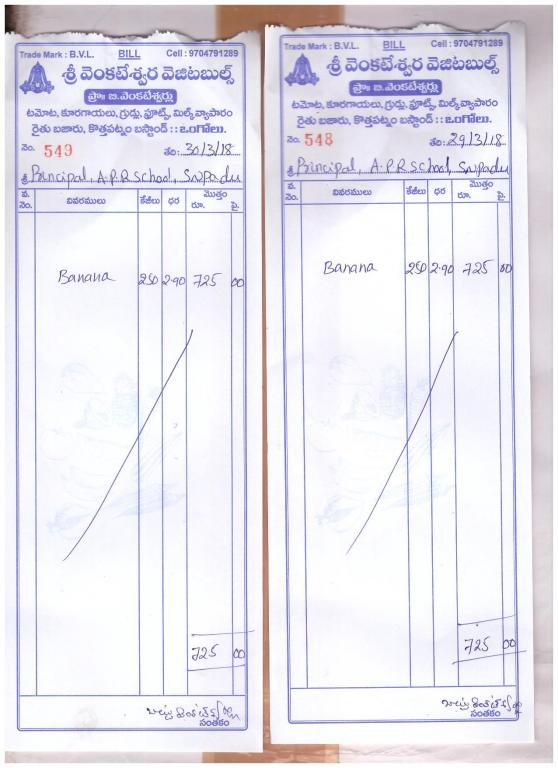 Trade Mark : B.V.L. BILL Cell : 9704791289
శ్రీ వెంకటేశ్వర వెజిటబుల్స్
ప్రొః బి.వెంకటేశ్వర్లు
టమోట, కూరగాయలు, గ్రుడ్లు, ఫ్రూట్స్, మిల్క్ వ్యాపారం
రైతు బజారు, కొత్తపట్నం బస్టాండ్ : : ఒంగోలు.
నెం. 549 తేది: 30/3/18
శ్రీ Principal, A.P.R School, Snpadu
వ. నెం. వివరములు కేజీలు ధర మొత్తం రూ. పై.
Banana 250 2-90 725 00
725 00
సంతకం
Trade Mark : B.V.L. BILL Cell : 9704791289
శ్రీ వెంకటేశ్వర వెజిటబుల్స్
ప్రొః బి.వెంకటేశ్వర్లు
టమోట, కూరగాయలు, గ్రుడ్లు, ఫ్రూట్స్, మిల్క్ వ్యాపారం
రైతు బజారు, కొత్తపట్నం బస్టాండ్ : : ఒంగోలు.
నెం. 548 తేది: 29/3/18
శ్రీ Principal, A.P.R School, Snpadu
వ. నెం. వివరములు కేజీలు ధర మొత్తం రూ. పై.
Banana 250 2-90 725 00
725 00
సంతకం